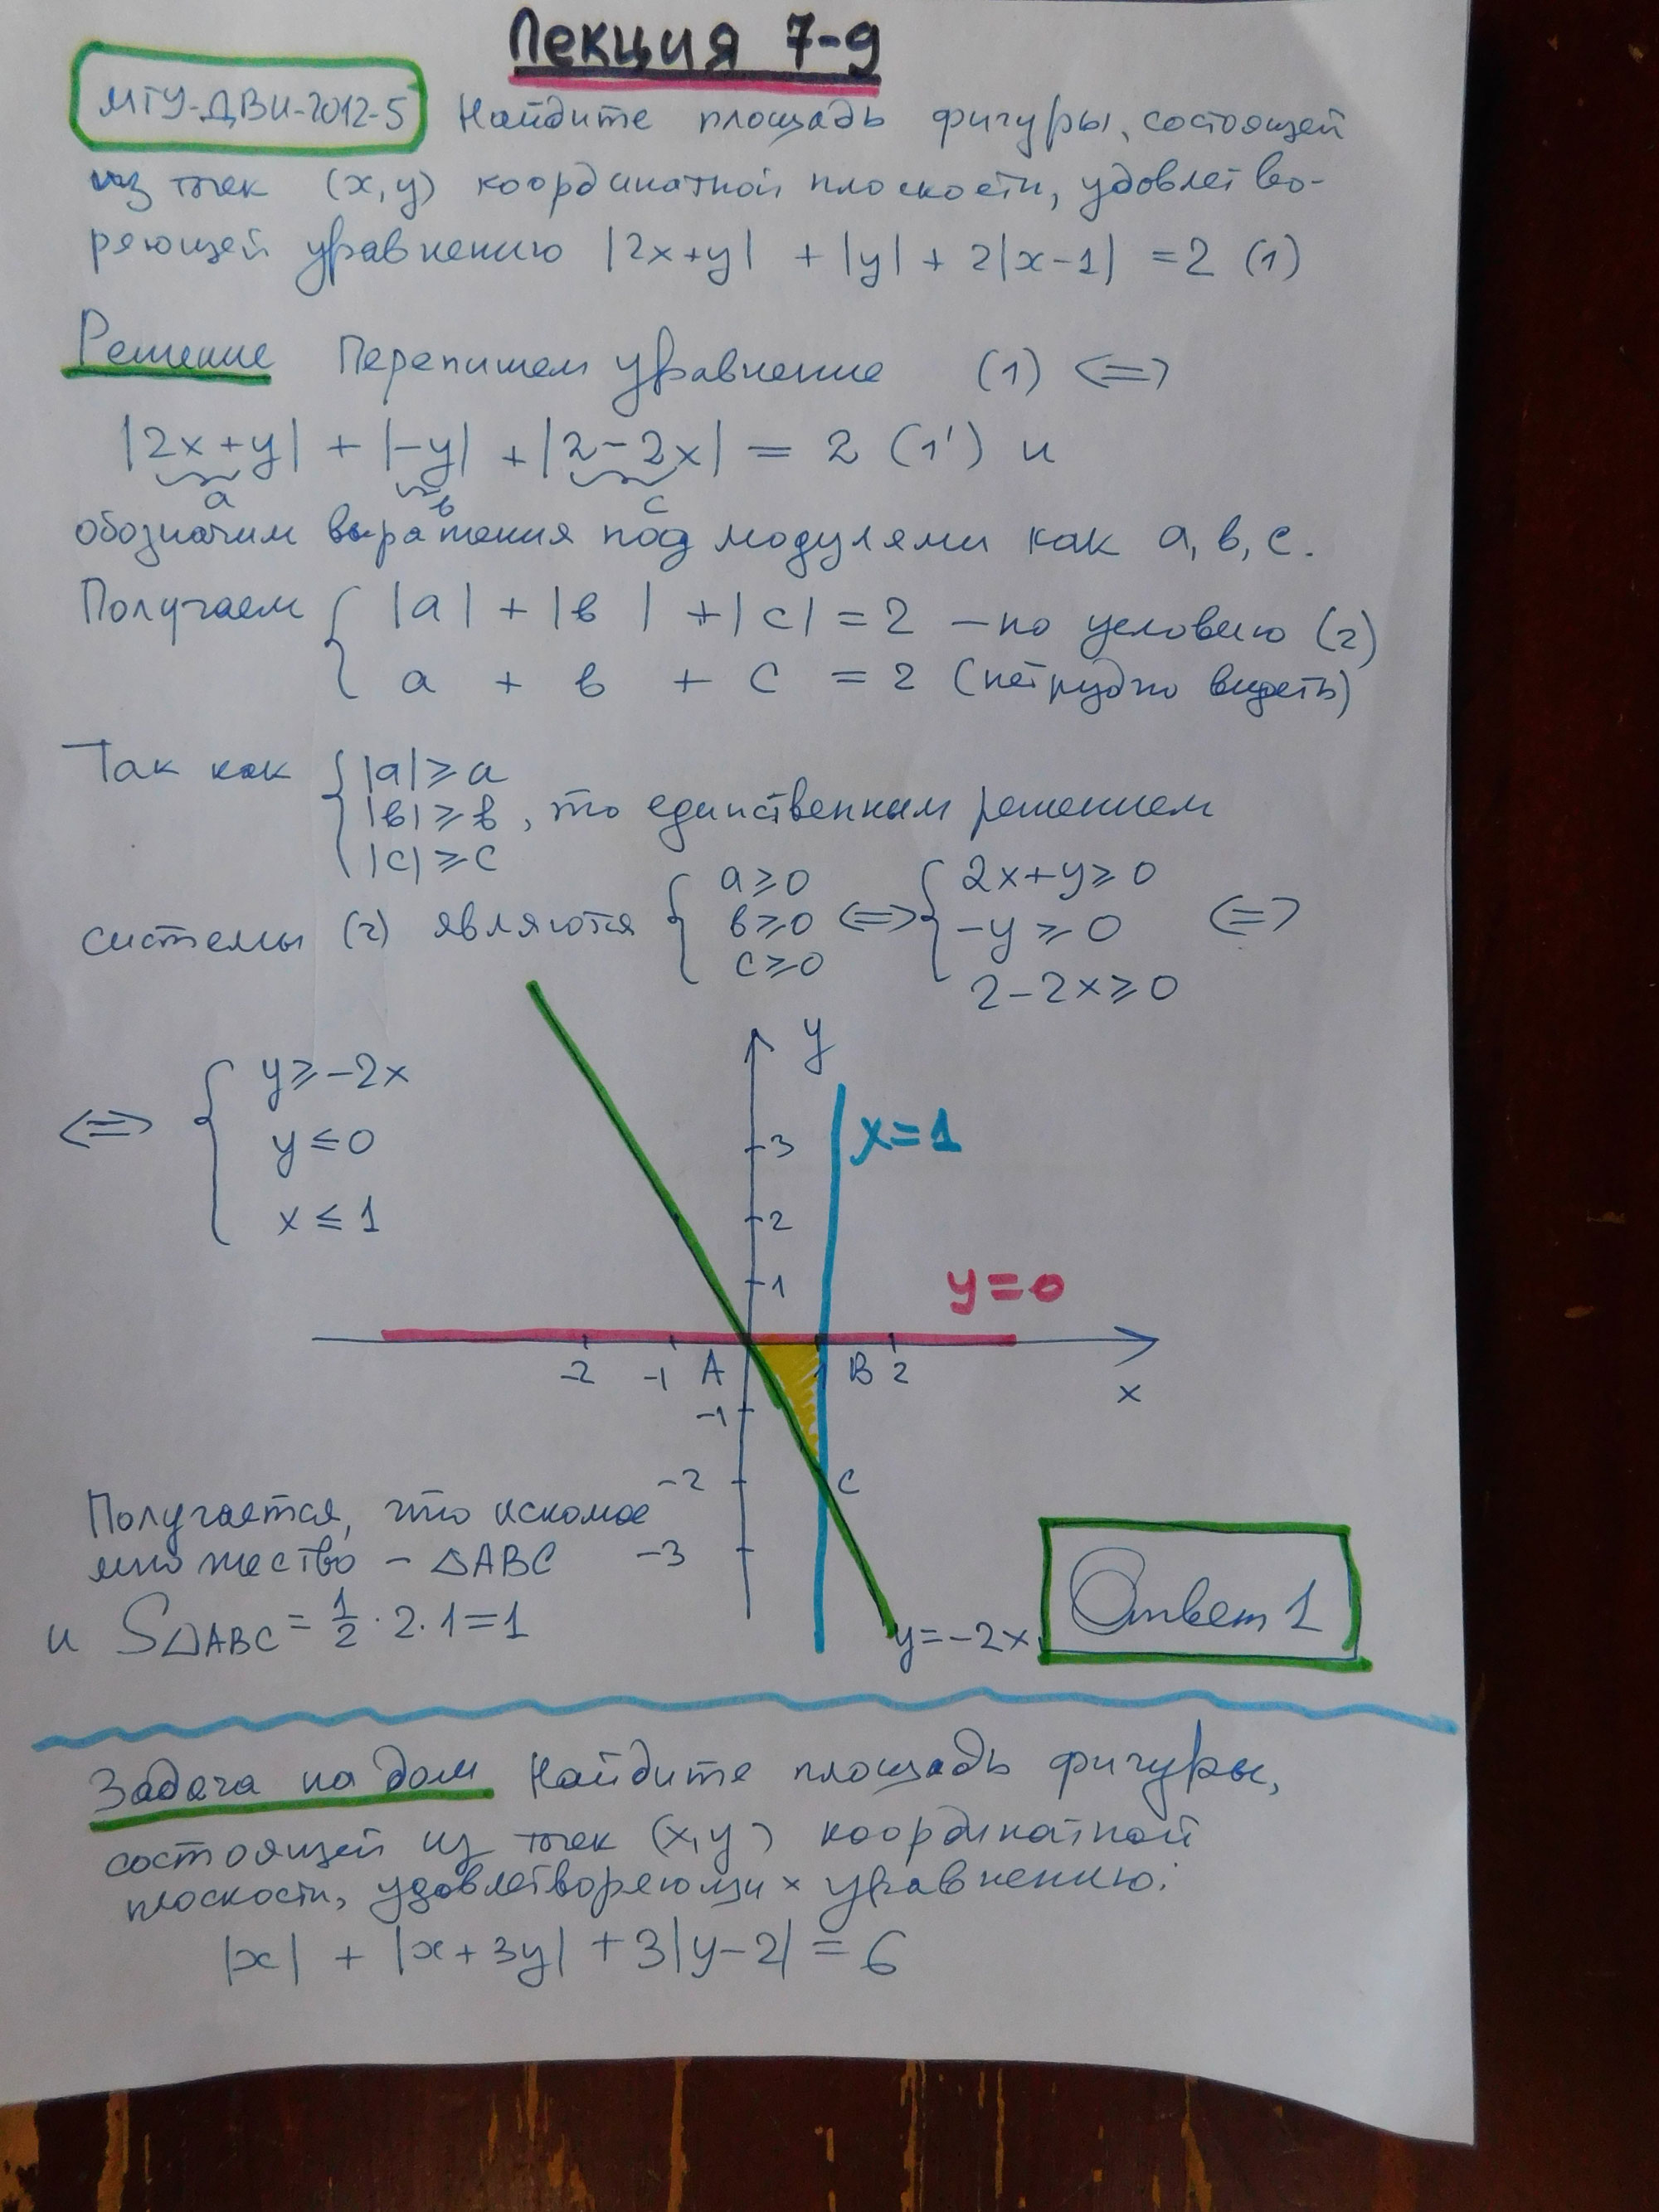 Лекция 7-9
МГУ-ДВИ-2012-5 Найдите площадь фигуры, состоящей
из точек (x,y) координатной плоскости, удовлетво-
ряющей уравнению |2x+y| + |y| + 2|x-1| = 2 (1)
Решение Перепишем уравнение (1) <=>
|2x+y| + |-y| + |2-2x| = 2 (1') и
a в c
обозначим выражения под модулями как a, в, c.
Получаем { |a| + |в| + |c| = 2 — по условию (2)
a + в + c = 2 (нетрудно видеть)
Так как { |a| ⩾ a
|в| ⩾ в, то единственным решением
|c| ⩾ c
системы (2) являются { a⩾0 в⩾0 c⩾0 <=> { 2x+y⩾0 -y⩾0 2-2x⩾0 <=>
<=> { y⩾-2x
y ≤ 0
x ≤ 1
y
x=1
3
2
1
y=0
-2 -1 A 1 B 2
x
-1
-2 C
-3
y=-2x
Получается, что искомое
множество – △ABC
и S△ABC = 1/2 · 2 · 1 = 1
Ответ 1
Задача на дом Найдите площадь фигуры,
состоящей из точек (x,y) координатной
плоскости, удовлетворяющих уравнению:
|x| + |x+3y| + 3|y-2| = 6